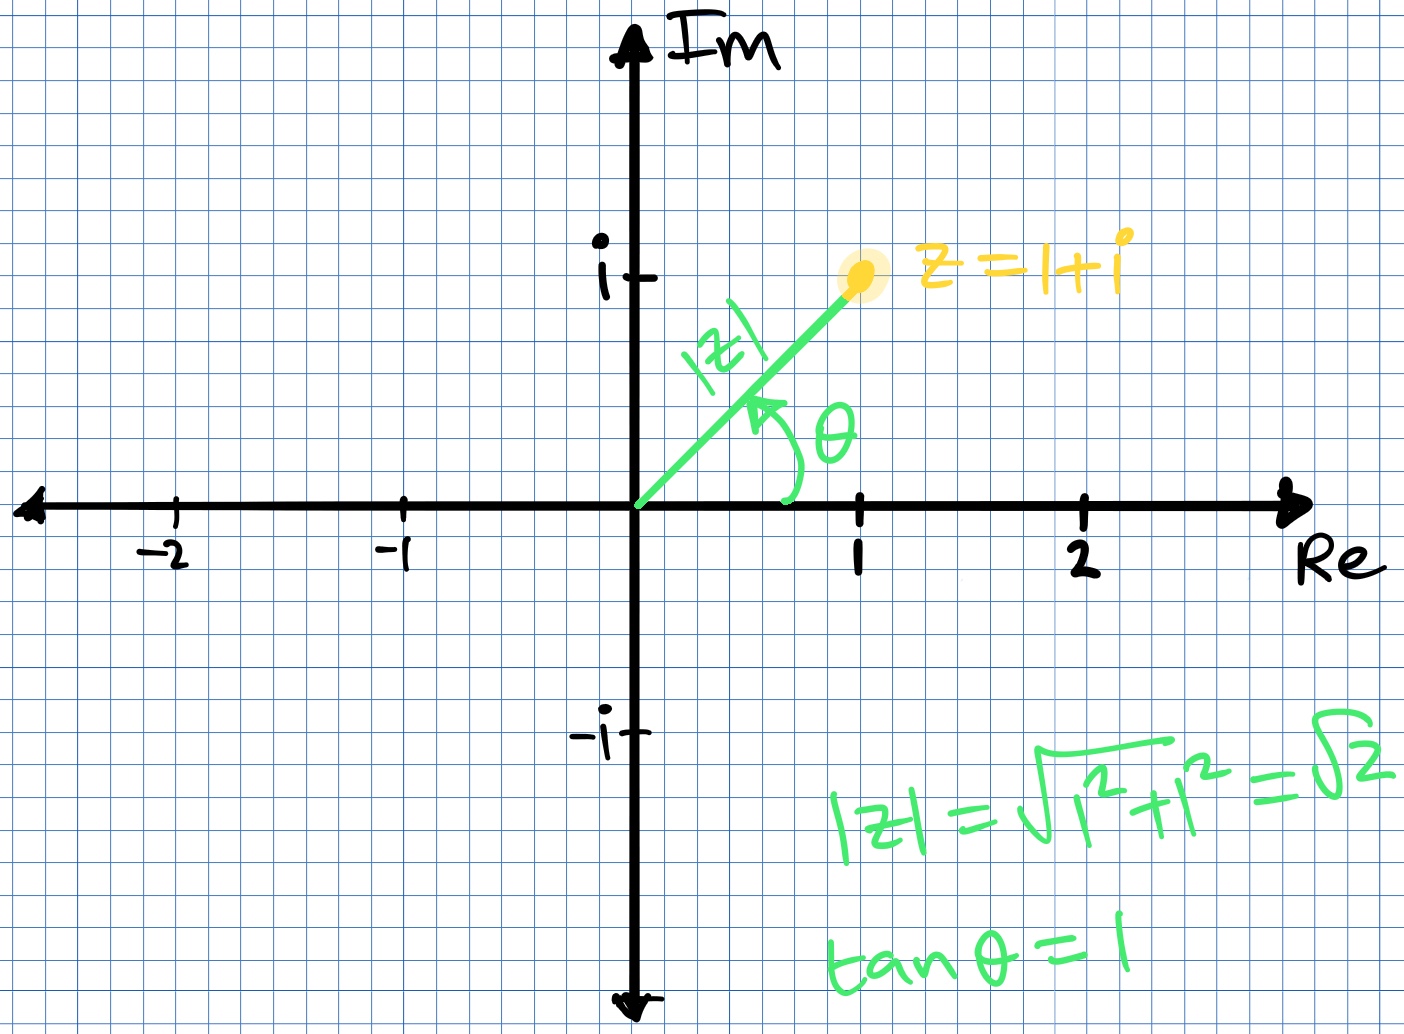 Im
i
z = 1 + i
|z|
θ
-2
-1
1
2
Re
-i
|z| = √1² + 1² = √2
tan θ = 1